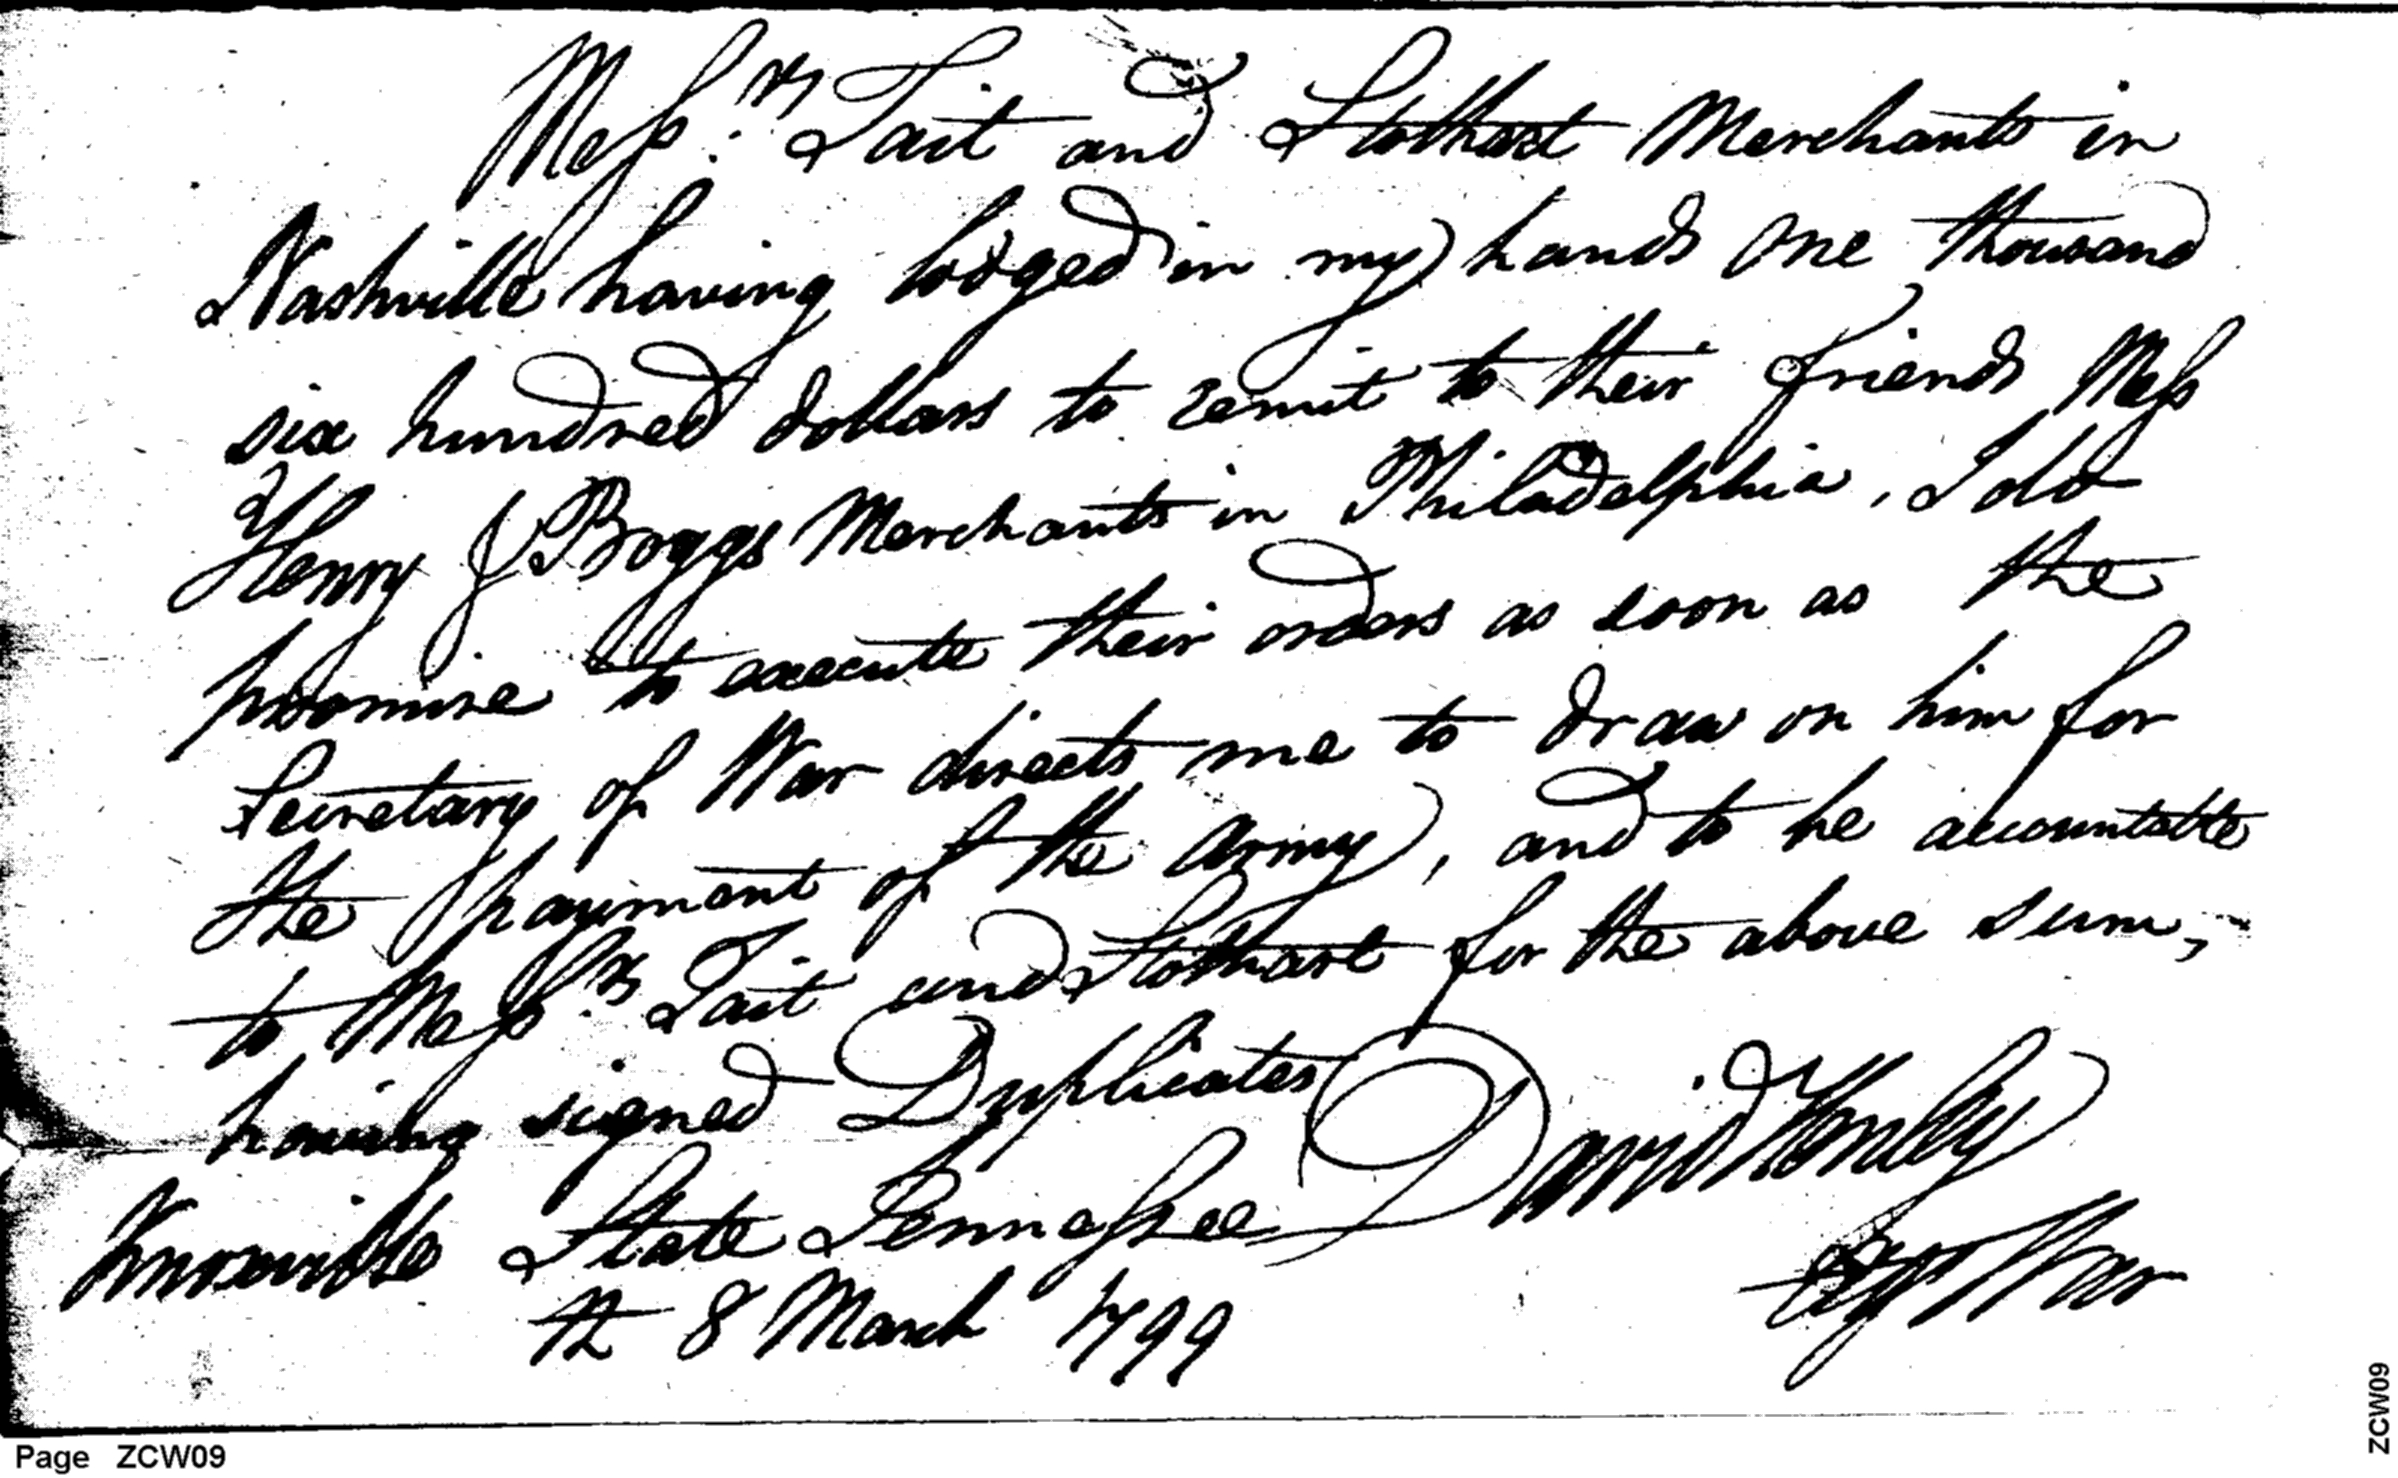 Messrs Tait and Stothart Merchants in
Nashville having lodged in my hands one thousand
six hundred dollars to remit to their friends Mess
Henry J Boggs Merchants in Philadelphia, I do
promise to execute their orders as soon as the
Secretary of War directs me to draw on him for
the payment of the Army, and to be accountable
to Messrs Tait and Stothart for the above sum,
having signed Duplicates
David Henley
Agt War
Knoxville State Tennessee
th 8 March 1799
Page ZCW09
ZCW09